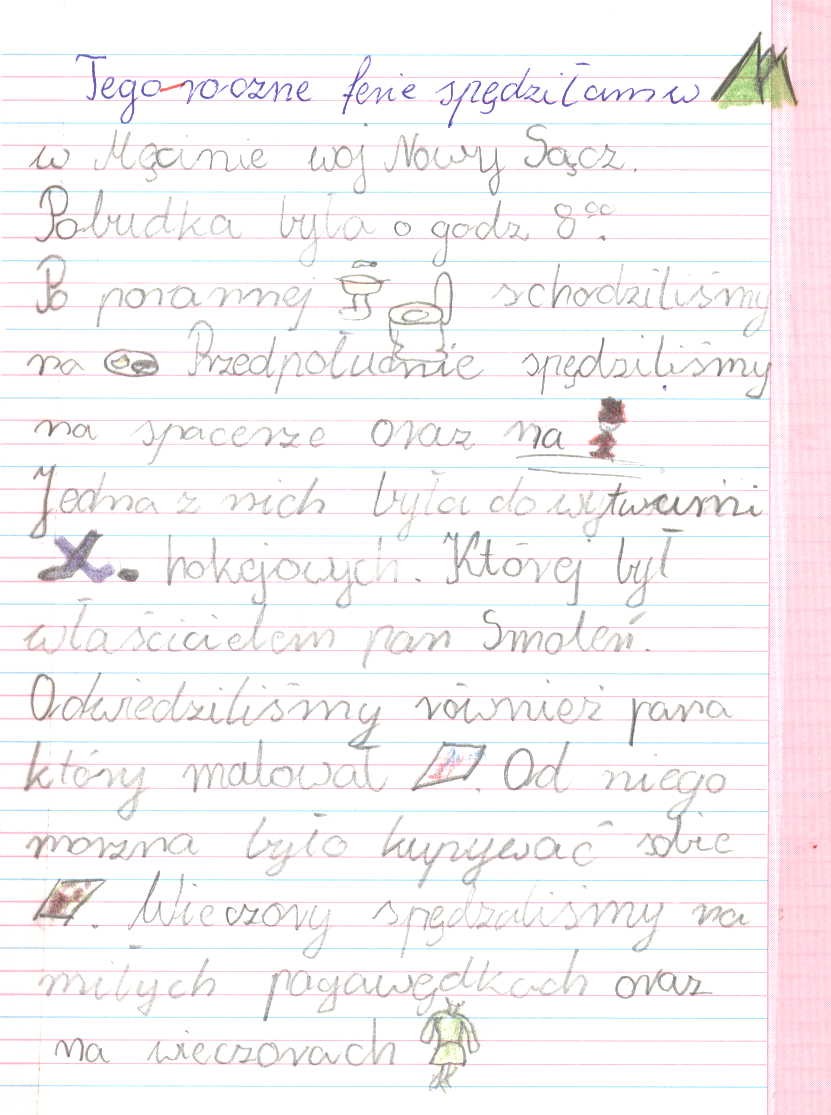 Tego roczne ferie spędziłam w
w Męcinie woj Nowy Sącz.
Pobudka była o godz 8⁰⁰.
Po porannej schodziliśmy
na Przedpołudnie spędziliśmy
na spacerze oraz na
Jedna z nich była do wytwurni
hokejowych. Której był
właścicielem pan Smoleń.
Odwiedziliśmy również pana
który malował . Od niego
morzna było kupywać sobie
. Wieczory spędzaliśmy na
miłych pagawędkach oraz
na wieczorach